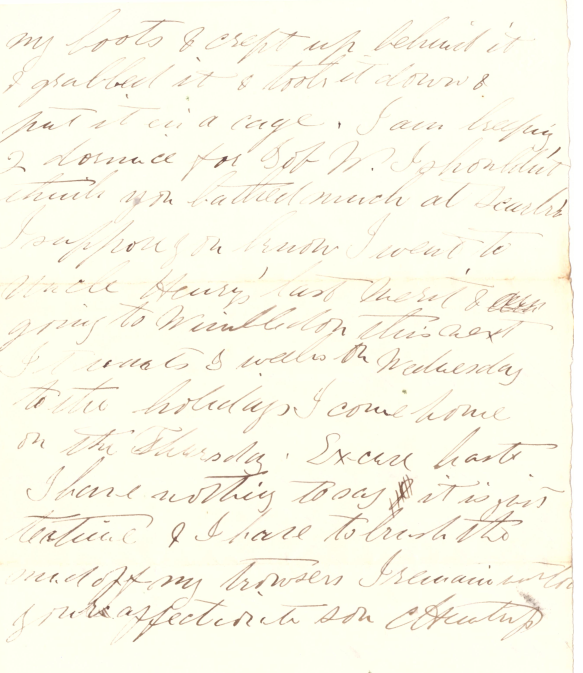 my boots & crept up behind it
I grabbed it & took it down &
put it in a cage. I am keeping
2 dormice for Bob W. I shouldn't
think you bathed much at Scarbro
I suppose you know I went to
Uncle Henry's last Merit &
going to Wimbledon this next
It wants 3 weeks on Wednesday
to the holidays I come home
on the Thursday. Excuse haste
I have nothing to say it is just
teatime & I have to brush the
mud off my trowsers I remain
your affectionate son